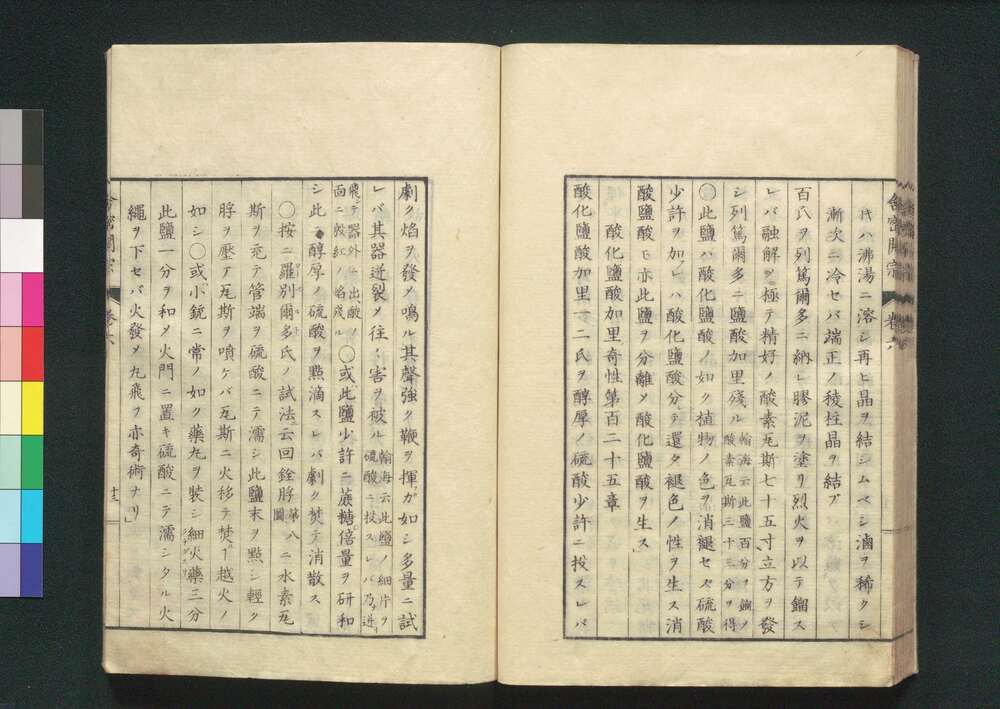 氏ハ沸湯ニ溶シ再ヒ晶ヲ結シムベシ滷ヲ稀クシ
漸次ニ冷セバ端正ノ稜柱晶ヲ結ブ
百氏ヲ列篤爾多ニ納レ膠泥ヲ塗リ烈火ヲ以テ鎦ス
レバ融解ヲ極テ精好ノ酸素瓦斯七十五寸立方ヲ發
シ列篤爾多ニ鹽酸加里殘ル
翰海云此鹽百分ヲ鎦メ
酸素瓦斯三十三分ヲ得
〇此鹽ハ酸化鹽酸ノ如ク植物ノ色ヲ消褪セズ硫酸
少許ヲ加レハ酸化鹽酸分テ還タ褪色ノ性ヲ生ス消
酸鹽酸モ亦此鹽ヲ分離メ酸化鹽酸ヲ生ス
酸化鹽酸加里奇性第百二十五章
酸化鹽酸加里一二氏ヲ醇厚ノ硫酸少許ニ投スレバ
舎密開宗
卷六
劇ク焰ヲ發メ鳴ル其聲強ク鞭ヲ揮ガ如シ多量ニ試
レバ其器迸裂メ往々害ヲ被ル
翰海云此鹽ノ細片ヲ
硫酸ニ投スレバ乃迸
飛テ器外ニ出酸ノ
面ニ殷紅ノ焰殘ル
〇或此鹽少許ニ蔗糖倍量ヲ研和
シ此ニ醇厚ノ硫酸ヲ點滴スレバ劇ク焚テ消散ス
〇按ニ羅別爾多氏ノ試法云回銓脬
第八
圖
ニ水素瓦
斯ヲ充テ管端ヲ硫酸ニテ濡シ此鹽末ヲ點シ輕ク
脬ヲ壓ア瓦斯ヲ噴ケバ瓦斯ニ火移テ焚ー越火ノ
如シ〇或小銃ニ常ノ如ク藥丸ヲ裝シ細火藥三分
此鹽一分ヲ和メ火門ニ置キ硫酸ニテ濡シタル火
繩ヲ下セバ火發メ丸飛フ亦奇術ナリ
舎密開宗
卷六
十三